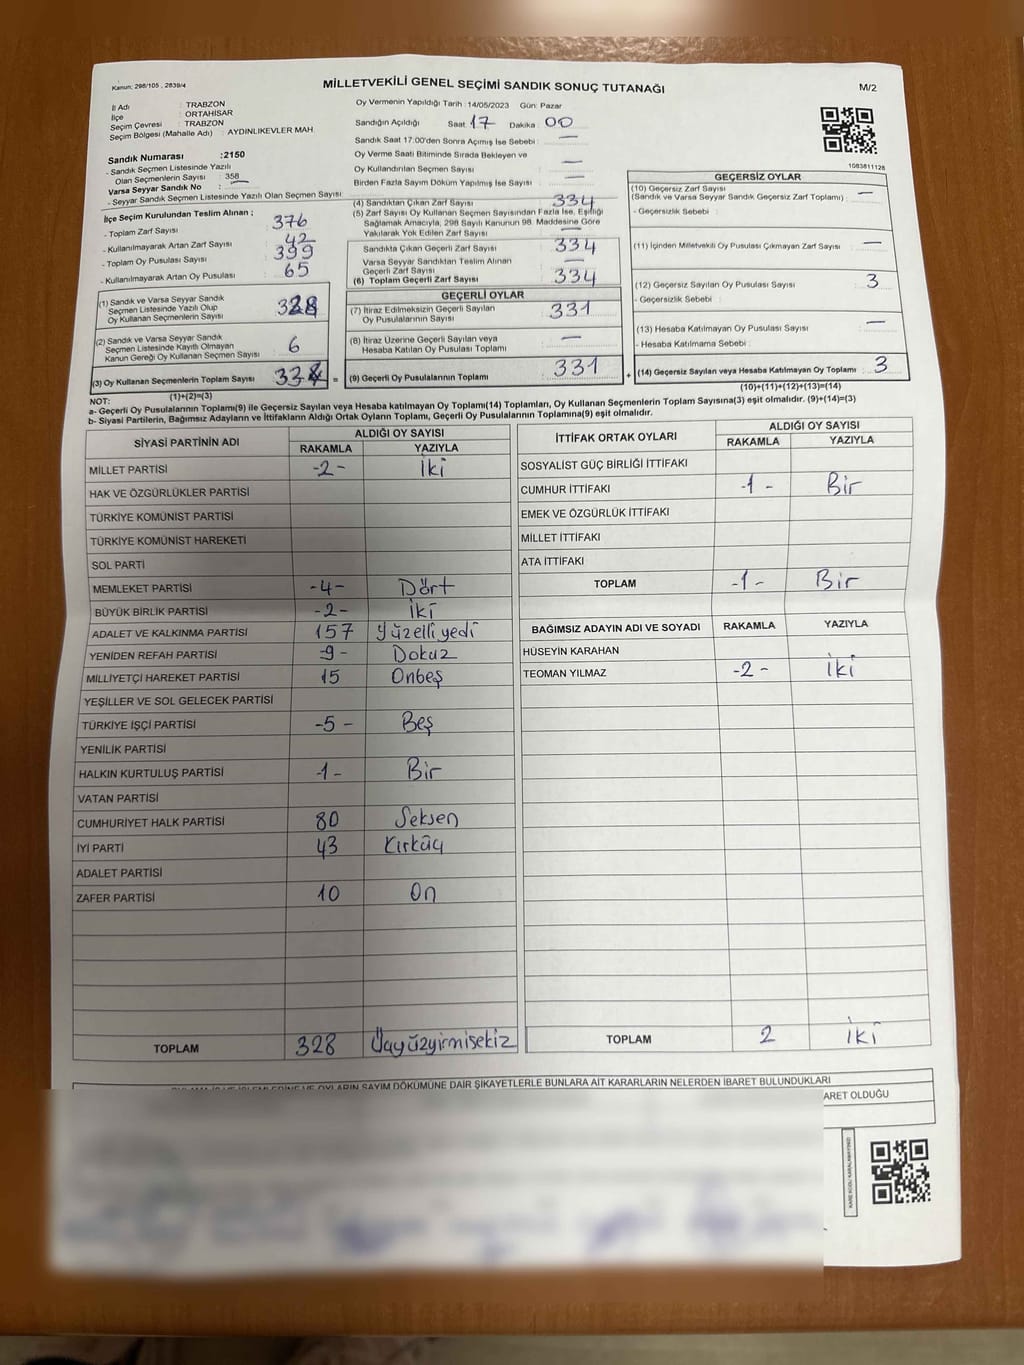 Kanun: 298/105 , 2839/4
MİLLETVEKİLİ GENEL SEÇİMİ SANDIK SONUÇ TUTANAĞI
M/2
İl Adı : TRABZON
İlçe : ORTAHİSAR
Seçim Çevresi : TRABZON
Seçim Bölgesi (Mahalle Adı) : AYDINLIKEVLER MAH.
Sandık Numarası :2150
- Sandık Seçmen Listesinde Yazılı
Olan Seçmenlerin Sayısı : 358
Varsa Seyyar Sandık No :
- Seyyar Sandık Seçmen Listesinde Yazılı Olan Seçmen Sayısı :
İlçe Seçim Kurulundan Teslim Alınan ;
- Toplam Zarf Sayısı : 376
- Kullanılmayarak Artan Zarf Sayısı : 42
- Toplam Oy Pusulası Sayısı : 399
- Kullanılmayarak Artan Oy Pusulası : 65
(1) Sandık ve Varsa Seyyar Sandık
Seçmen Listesinde Yazılı Olup
Oy Kullanan Seçmenlerin Sayısı : 328
(2) Sandık ve Varsa Seyyar Sandık
Seçmen Listesinde Kayıtlı Olmayan
Kanun Gereği Oy Kullanan Seçmen Sayısı : 6
(3) Oy Kullanan Seçmenlerin Toplam Sayısı : 334
(1)+(2)=(3)
Oy Vermenin Yapıldığı Tarih : 14/05/2023 Gün: Pazar
Sandığın Açıldığı : Saat 17 Dakika : 00
Sandık Saat 17:00'den Sonra Açılmış İse Sebebi : —
Oy Verme Saati Bitiminde Sırada Bekleyen ve
Oy Kullandırılan Seçmen Sayısı : —
Birden Fazla Sayım Döküm Yapılmış İse Sayısı : —
(4) Sandıktan Çıkan Zarf Sayısı : 334
(5) Zarf Sayısı Oy Kullanan Seçmen Sayısından Fazla İse, Eşitliği
Sağlamak Amacıyla, 298 Sayılı Kanunun 98. Maddesine Göre
Yakılarak Yok Edilen Zarf Sayısı : —
Sandıkta Çıkan Geçerli Zarf Sayısı : 334
Varsa Seyyar Sandıktan Teslim Alınan
Geçerli Zarf Sayısı : —
(6) Toplam Geçerli Zarf Sayısı : 334
GEÇERLİ OYLAR
(7) İtiraz Edilmeksizin Geçerli Sayılan
Oy Pusulalarının Sayısı : 331
(8) İtiraz Üzerine Geçerli Sayılan veya
Hesaba Katılan Oy Pusulası Toplamı : —
= (9) Geçerli Oy Pusulalarının Toplamı : 331
1083811128
GEÇERSİZ OYLAR
(10) Geçersiz Zarf Sayısı
(Sandık ve Varsa Seyyar Sandık Geçersiz Zarf Toplamı) : —
- Geçersizlik Sebebi :
(11) İçinden Milletvekili Oy Pusulası Çıkmayan Zarf Sayısı : —
(12) Geçersiz Sayılan Oy Pusulası Sayısı : 3
- Geçersizlik Sebebi :
(13) Hesaba Katılmayan Oy Pusulası Sayısı : —
- Hesaba Katılmama Sebebi :
+ (14) Geçersiz Sayılan veya Hesaba Katılmayan Oy Toplamı : 3
(10)+(11)+(12)+(13)=(14)
NOT:
a- Geçerli Oy Pusulalarının Toplamı(9) ile Geçersiz Sayılan veya Hesaba katılmayan Oy Toplamı(14) Toplamları, Oy Kullanan Seçmenlerin Toplam Sayısına(3) eşit olmalıdır. (9)+(14)=(3)
b- Siyasi Partilerin, Bağımsız Adayların ve İttifakların Aldığı Ortak Oyların Toplamı, Geçerli Oy Pusulalarının Toplamına(9) eşit olmalıdır.
SİYASİ PARTİNİN ADI ALDIĞI OY SAYISI
RAKAMLA YAZIYLA
MİLLET PARTİSİ -2- İki
HAK VE ÖZGÜRLÜKLER PARTİSİ
TÜRKİYE KOMÜNİST PARTİSİ
TÜRKİYE KOMÜNİST HAREKETİ
SOL PARTİ
MEMLEKET PARTİSİ -4- Dört
BÜYÜK BİRLİK PARTİSİ -2- İki
ADALET VE KALKINMA PARTİSİ 157 Yüzelliyedi
YENİDEN REFAH PARTİSİ -9- Dokuz
MİLLİYETÇİ HAREKET PARTİSİ 15 Onbeş
YEŞİLLER VE SOL GELECEK PARTİSİ
TÜRKİYE İŞÇİ PARTİSİ -5- Beş
YENİLİK PARTİSİ
HALKIN KURTULUŞ PARTİSİ -1- Bir
VATAN PARTİSİ
CUMHURİYET HALK PARTİSİ 80 Seksen
İYİ PARTİ 43 Kırküç
ADALET PARTİSİ
ZAFER PARTİSİ 10 On
TOPLAM 328 Üçyüzyirmisekiz
İTTİFAK ORTAK OYLARI ALDIĞI OY SAYISI
RAKAMLA YAZIYLA
SOSYALİST GÜÇ BİRLİĞİ İTTİFAKI
CUMHUR İTTİFAKI -1- Bir
EMEK VE ÖZGÜRLÜK İTTİFAKI
MİLLET İTTİFAKI
ATA İTTİFAKI
TOPLAM -1- Bir
BAĞIMSIZ ADAYIN ADI VE SOYADI RAKAMLA YAZIYLA
HÜSEYİN KARAHAN
TEOMAN YILMAZ -2- İki
TOPLAM 2 İki
OYLARIN SAYIM DÖKÜMÜNE DAİR ŞİKAYETLERLE BUNLARA AİT KARARLARIN NELERDEN İBARET BULUNDUKLARI
OLDUĞU